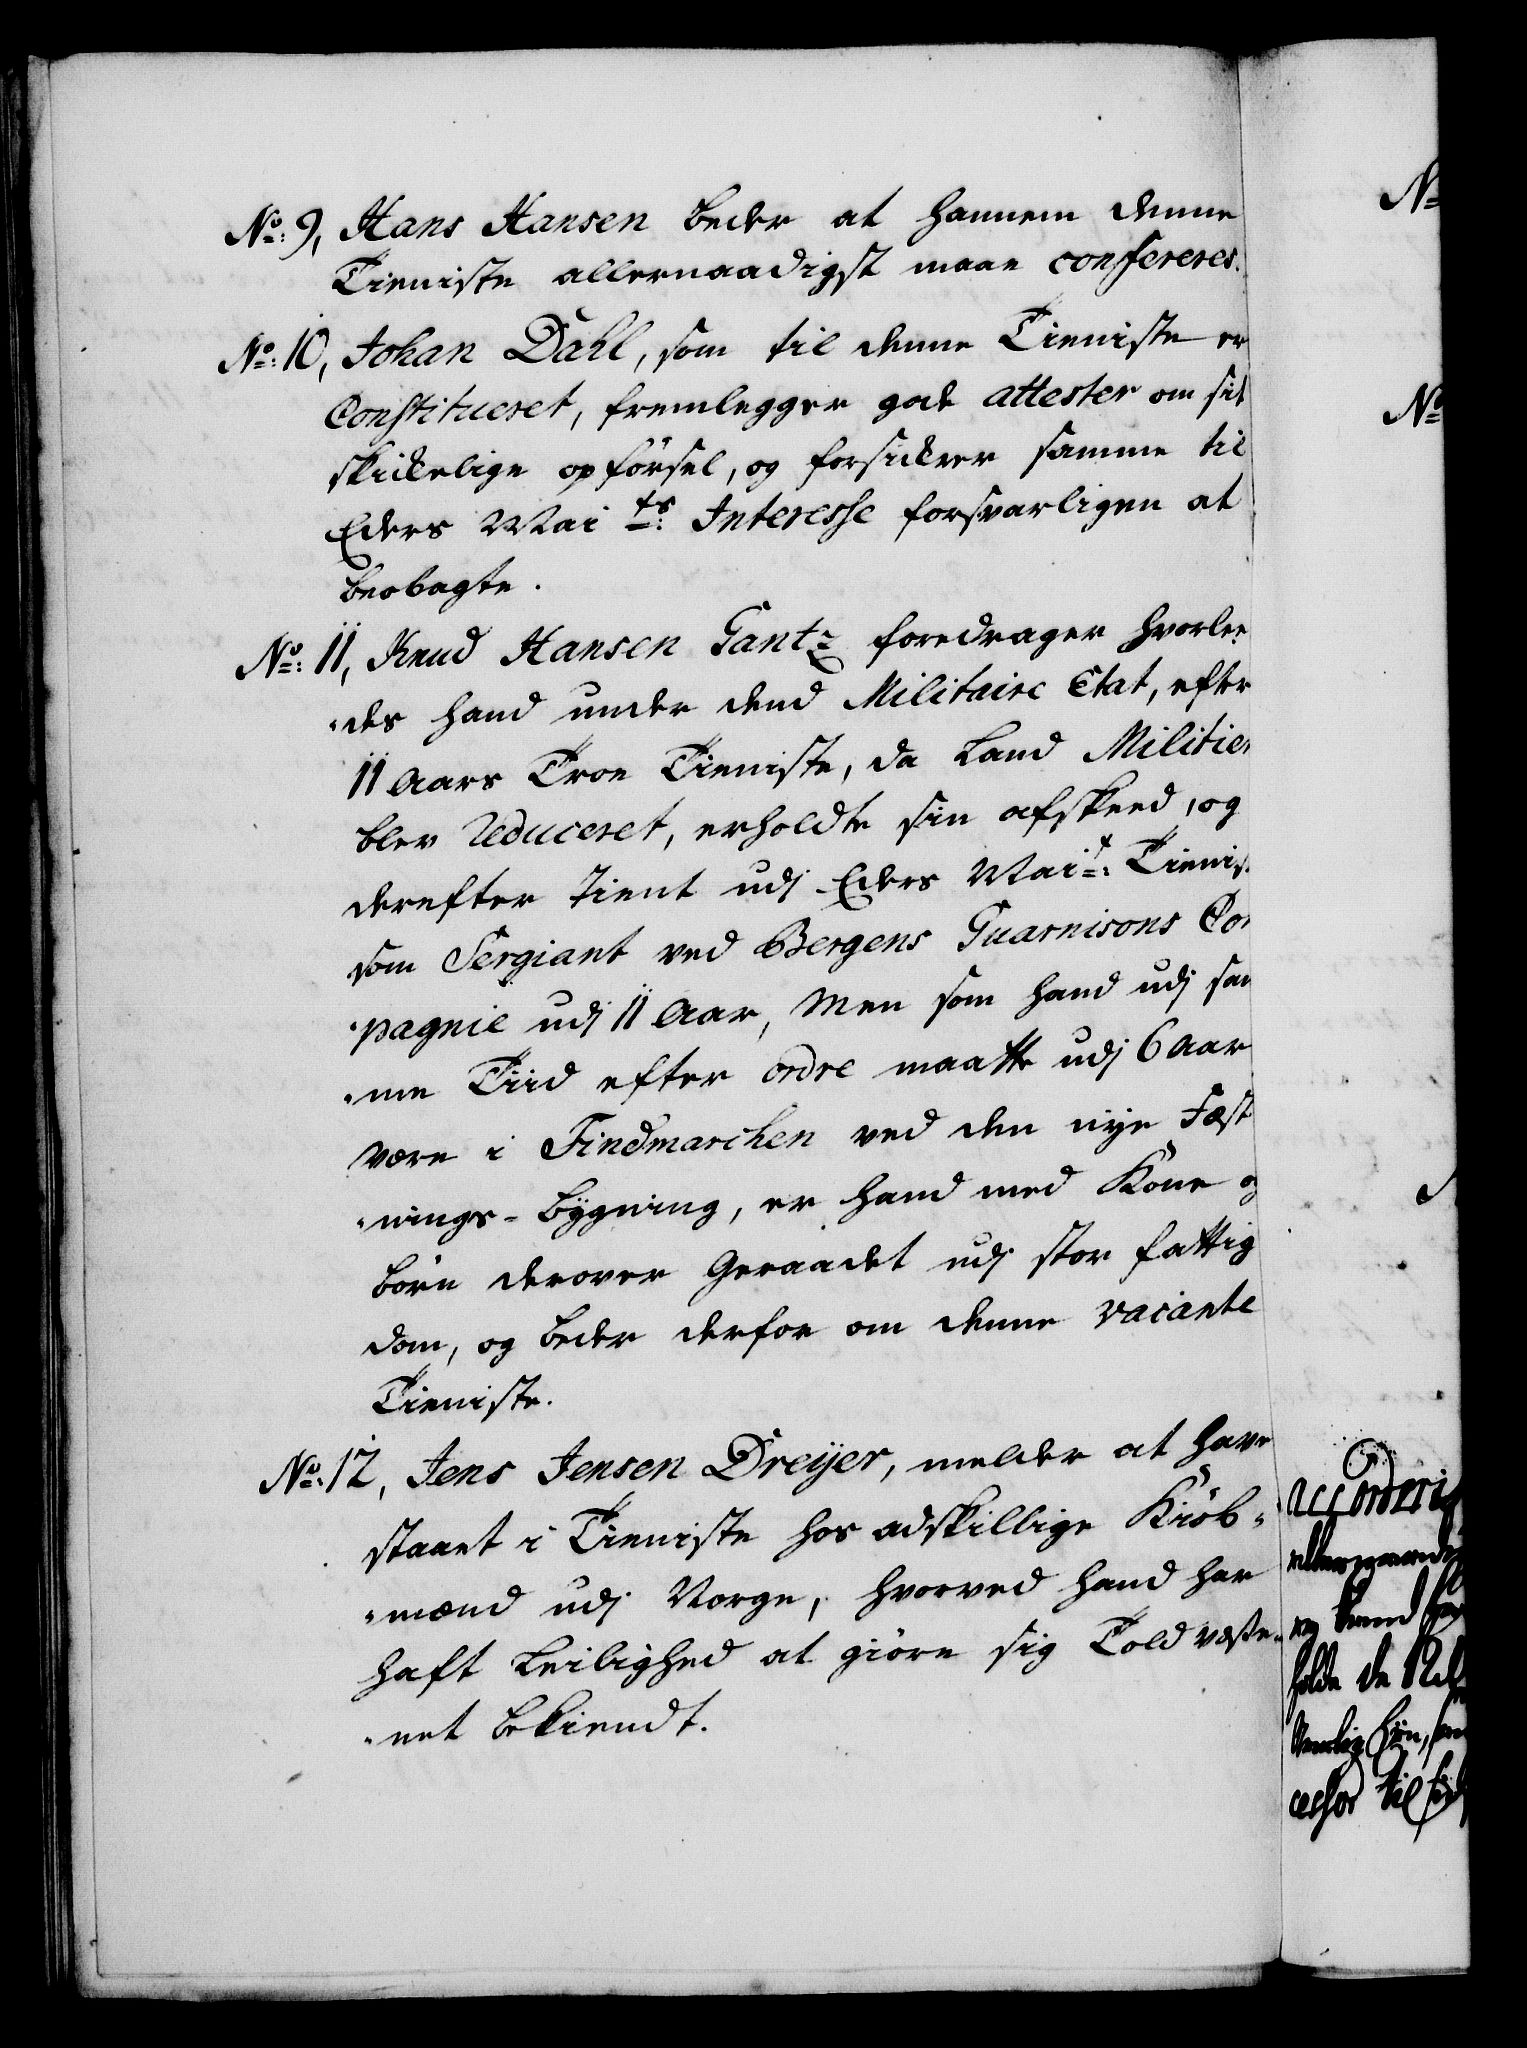 No: 9, Hans Hansen beder at hannem denne
Tieniste allernaadigst maae confereres.
No: 10, Johan Dahl, som til denne Tieniste er
Constitueret, fremlegger gode attester om sit
skickelige opførsel, og forsickrer samme til
Eders Maits: Interesse forsvarligen at
beobagte.
No: 11, Knud Hansen Gantz foredrager hvorlee
des hand under dend Militaire Etat, efter
11 Aars Troe Tieniste, da Land Militien
blev Reduceret, erholdte sin afskeed, og
derefter tient udj Eders Mait: Tienis
som Sergiant ved Bergens Guarnisons Com
pagnie udj 11 Aar, Men som hand udj sam
me Tiid efter ordre maatte udj 6 Aar
være i Findmarchen ved den nye Fæst
nings-bygning, er hand med Kone og
børn derover Geraadet udj stor fattig
dom, og beder derfor om denne vacante
Tieniste.
No: 12, Jens Jensen Dreyer, melder at have
staaet i Tieniste hos adskillige Kiøb-
mænd udj Norge, hvorved hand har
haft Leilighed at giøre sig Toldvæse-
net bekiendt.
No
No
accorderis
holde de
cessor til